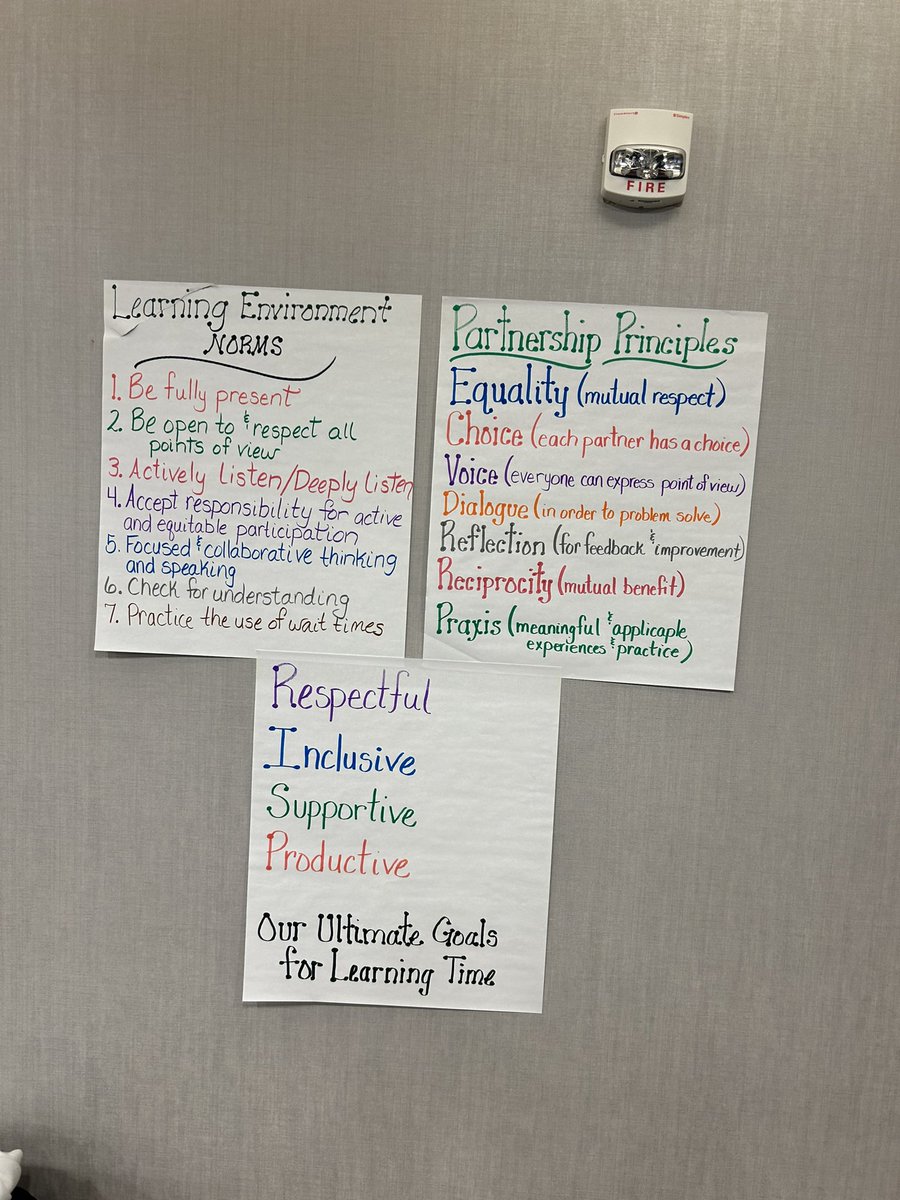 FIRE
Learning Environment
NORMS
1. Be fully present
2. Be open to & respect all
points of view
3. Actively Listen/Deeply Listen
4. Accept responsibility for active
and equitable participation
5. Focused & collaborative thinking
and speaking
6. Check for understanding
7. Practice the use of wait times
Partnership Principles
Equality (mutual respect)
Choice (each partner has a choice)
Voice (everyone can express point of view)
Dialogue (in order to problem solve)
Reflection (for feedback & improvement)
Reciprocity (mutual benefit)
Praxis (meaningful & applicaple
experiences & practice)
Respectful
Inclusive
Supportive
Productive
Our Ultimate Goals
for Learning Time